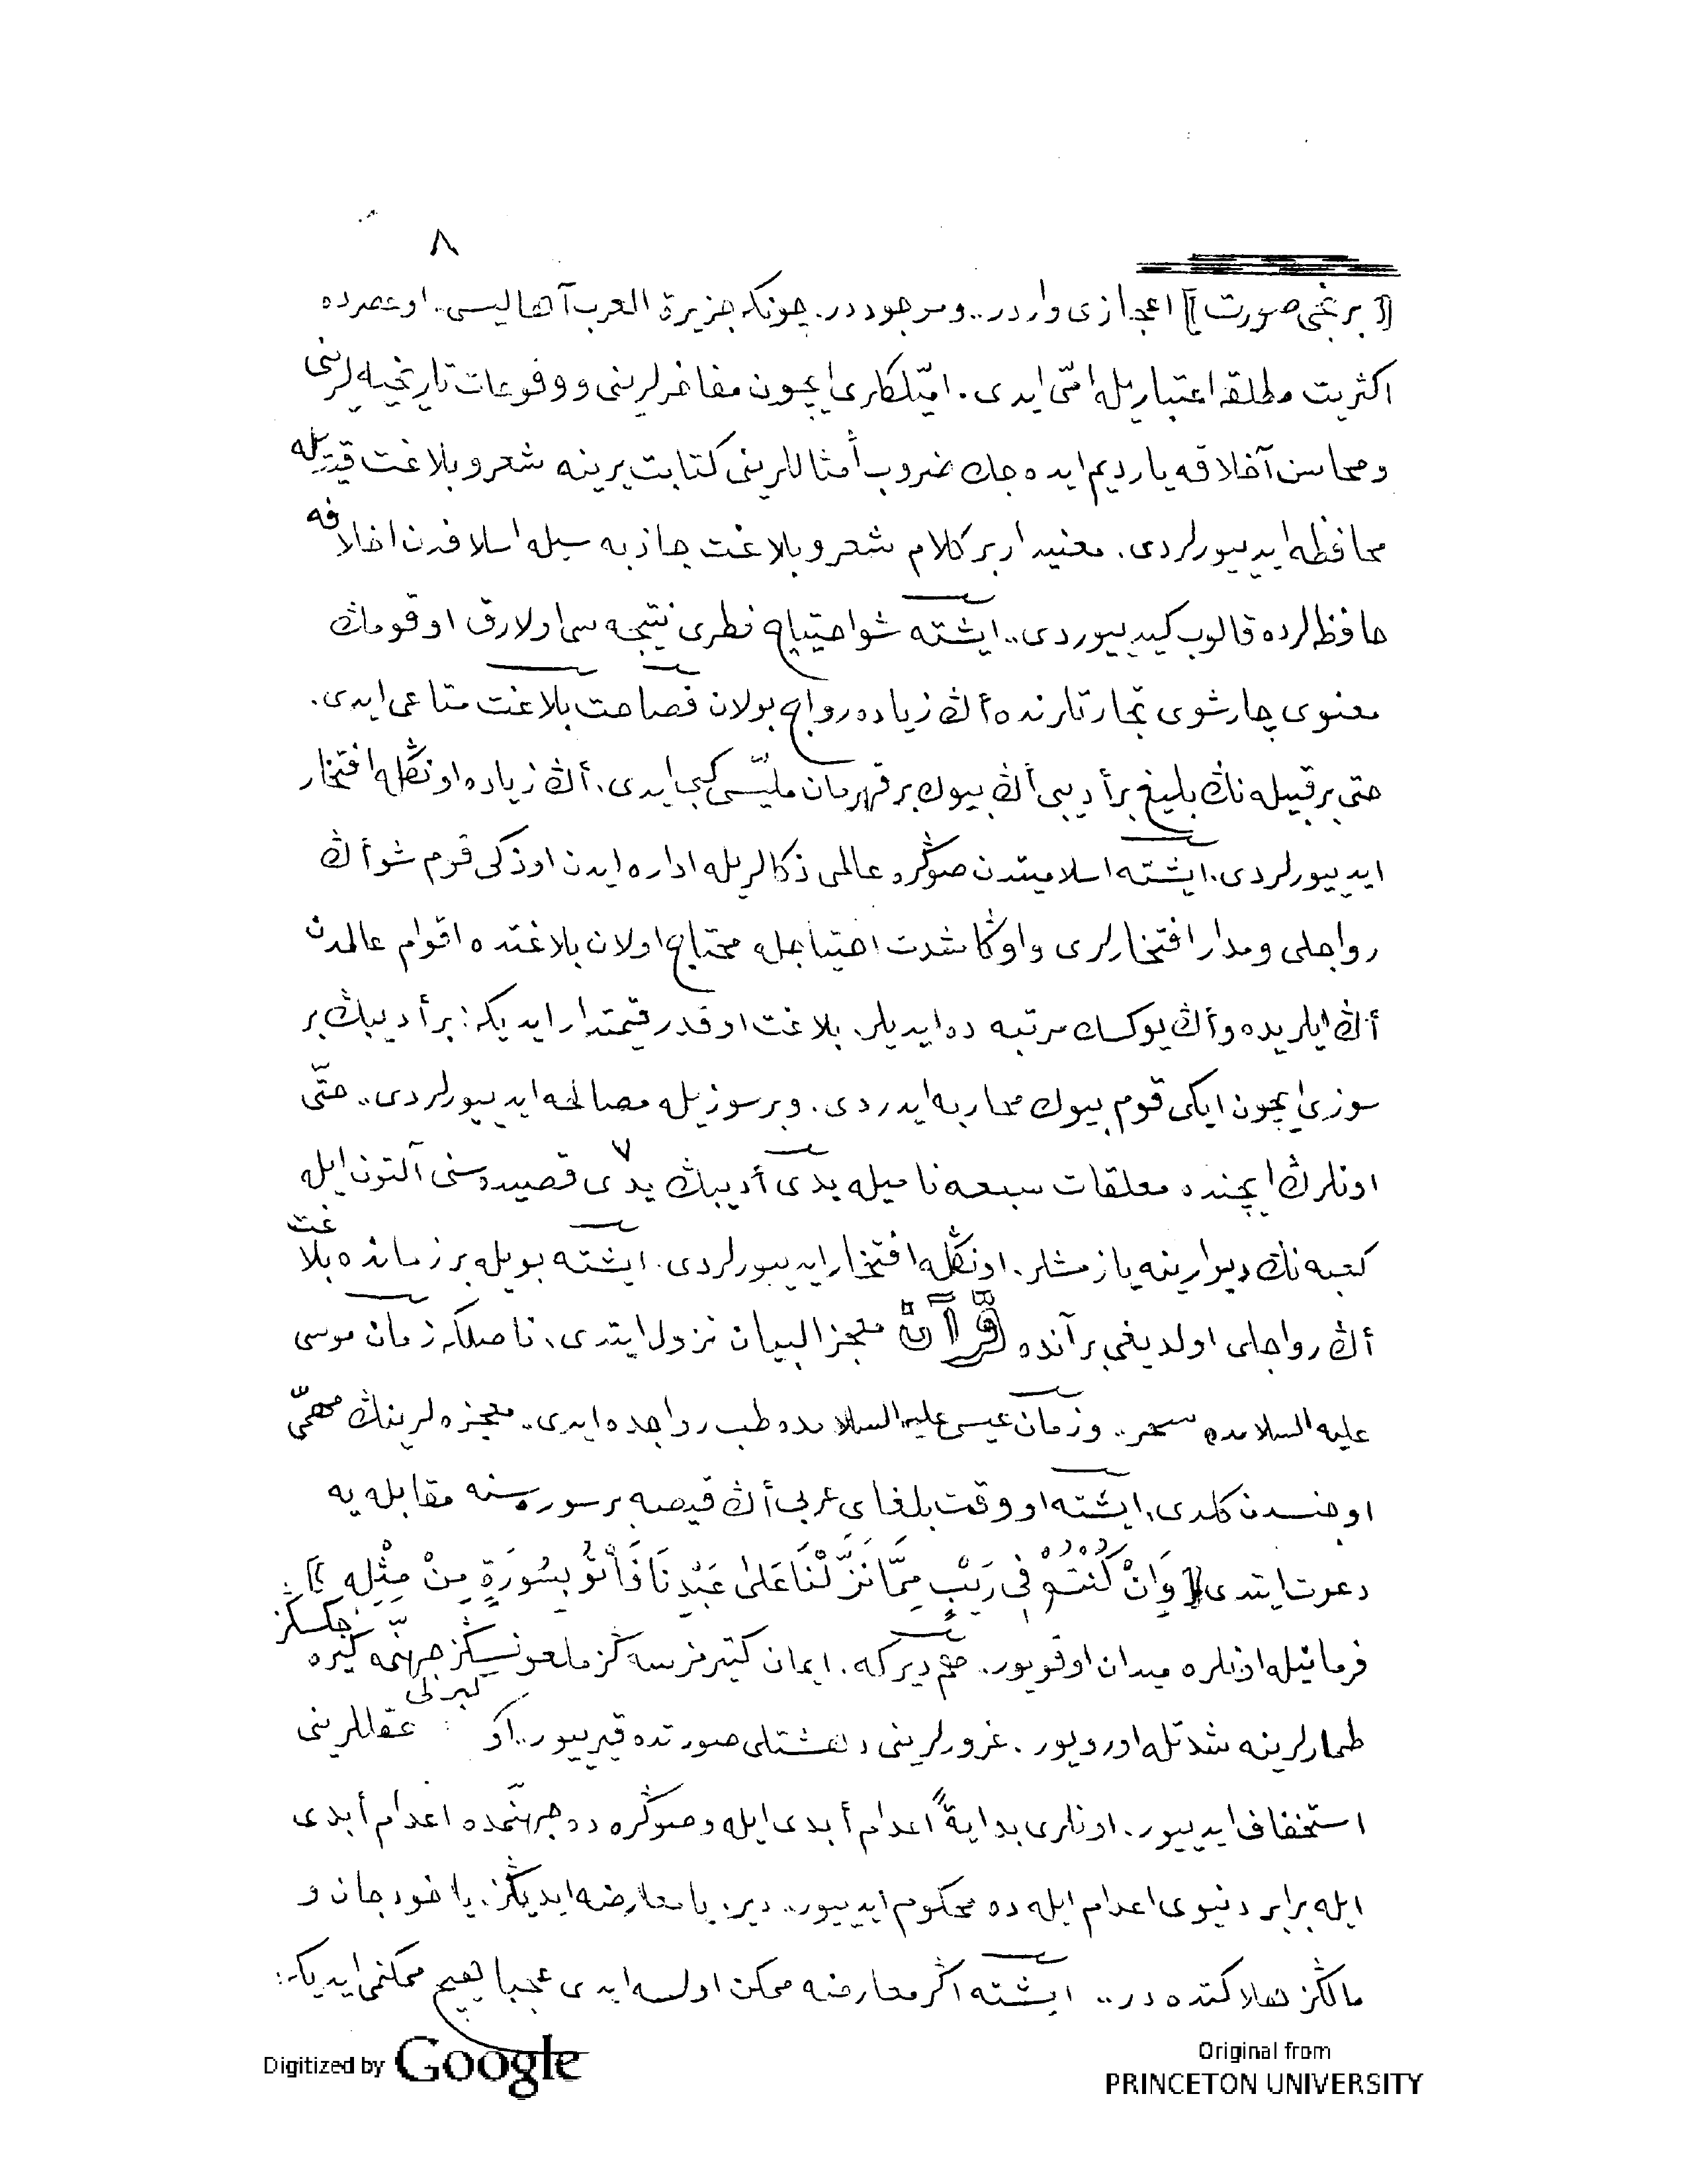 ٨
[[برنجی صورت]] اعجازی واردر.. وموجوددر. چونكه جزيرة العرب آهاليسی.. اوعصرده
اكثريت مطلقه اعتباريله امّی ایدی. امّیلكلری ایچون مفاخرلرینی ووقوعات تاریخیه‌لرینی
ومحاسن آخلاقه یاردیم ایده‌جك ضروب أمثاللرینی كتابت یرینه شعر وبلاغت قیدیله
محافظه ایدییورلردی. معنیدار بر كلام شعر وبلاغت جاذبه سیله اسلافدن اخلافه
حافظه‌لرده قالوب كیدییوردی.. ایشته شو احتیاج فطری نتیجه سی اولارق او قومڭ
معنوی چارشوی تجارتلرنده أڭ زیاده رواج بولان فصاحت بلاغت متاعی ایدی.
حتی بر قبیله نڭ بلیغ بر أدیبی أڭ بیوك بر قهرمان ملیّسی كبی ایدی. أڭ زیاده اونڭله افتخار
ایدییورلردی. ایشته اسلامیتدن صوڭره عالمی ذكالریله اداره ایدن او ذكی قوم شو أڭ
رواجلی ومدار افتخارلری واوڭا شدت احتیاجله محتاج اولان بلاغتده اقوام عالمدن
أڭ ایلریده وأڭ یوكسك مرتبه ده ایدیلر. بلاغت اوقدر قیمتدار ایدیكه: بر أدیبڭ بر
سوزی ایچون ایكی قوم بیوك محاربه ایدردی. وبر سوزیله مصالحه ایدییورلردی.. حتّی
اونلرڭ ایچنده معلقات سبعه نامیله یدی أدیبڭ یدی ٧ قصیده‌سنی آلتون ایله
كعبه نڭ دیوارینه یازمشلر. اونڭله افتخار ایدییورلردی. ایشته بویله بر زمانده بلاغت
أڭ رواجلی اولدیغی بر آنده قرآن معجز البیان نزول ایتدی. ناصلكه زمان موسی
علیه السلامده سحر.. وزمان عیسی علیه السلامده طب رواجده ایدی.. معجزه‌لرینڭ مهمّی
او جنسدن كلدی. ایشته او وقت بلغای عربی أڭ قیصه بر سوره‌سنه مقابله یه
دعوت ایتدی [[وَاِنْ كُنْتُمْ فِى رَيْبٍ مِمَّا نَزَّلْنَا عَلٰى عَبْدِنَا فَاْتُو بِسُورَةٍ مِنْ مِثْلِهِ]]
فرمانیله اونلره میدان اوقویور. هم دیركه. ایمان كتیرمزسه ڭز ملعونسڭز جهنّمه كیره جكسڭز
طمارلرینه شدتله اورویور. غرورلرینی دهشتلی صورتده قیرییور.. او كبرلی عقللرینی
استخفاف ایدییور. اونلری بدایةً اعدام أبدی ایله وصوڭره ده جهنّمده اعدام أبدی
ایله برابر دنیوی اعدام ایله ده محكوم ایدییور.. دیر. یا معارضه ایدیڭز. یاخود جان و
مالڭز هلاكتده در.. ایشته اگر معارضه ممكن اولسه ایدی عجبا هیچ ممكنمی ایدیكه:
Digitized by Google
Original from
PRINCETON UNIVERSITY